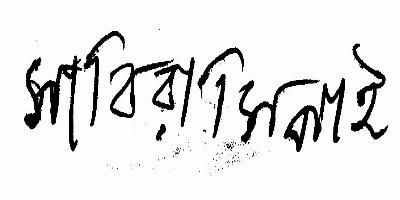 সাবিরা সিলাই